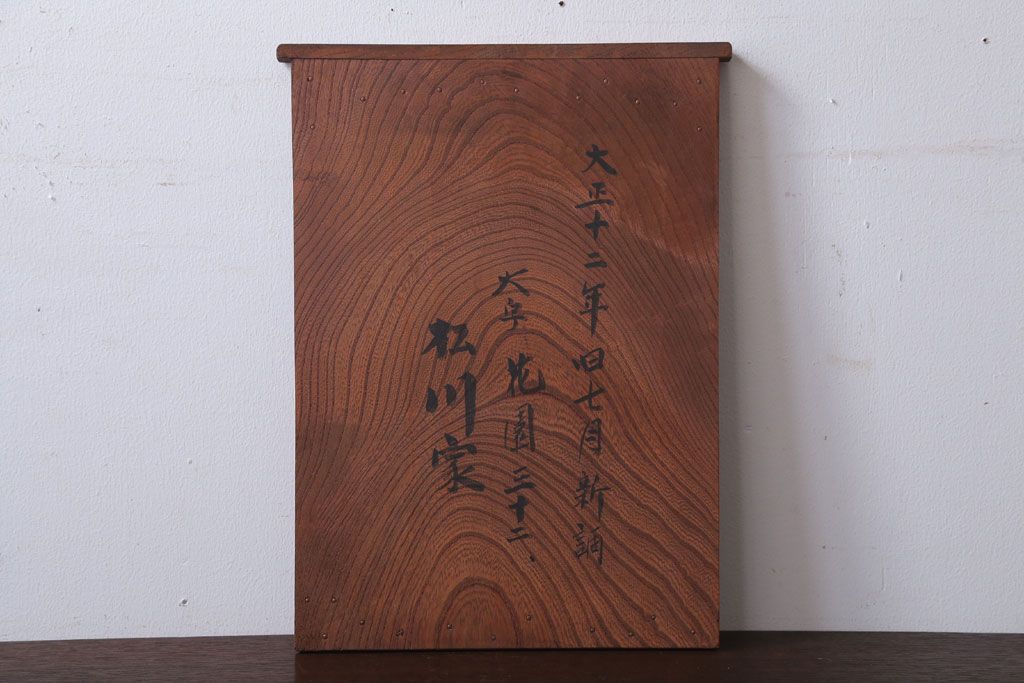 大正十二年旧七月新調
大字花園三十二、
松川家